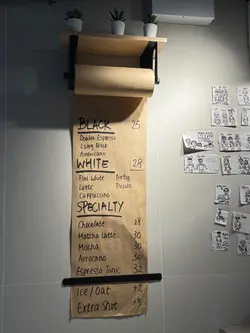 BLACK 25
Double Espresso
Long Black
Americano
WHITE 28
Flat White Dirty
Latte Piccolo
Cappuccino
SPECIALTY
Chocolate 28
Matcha Latte 30
Mocha 30
Aerocano 30
Espresso Tonic 32
Ice/Oat +2
Extra Shot +5